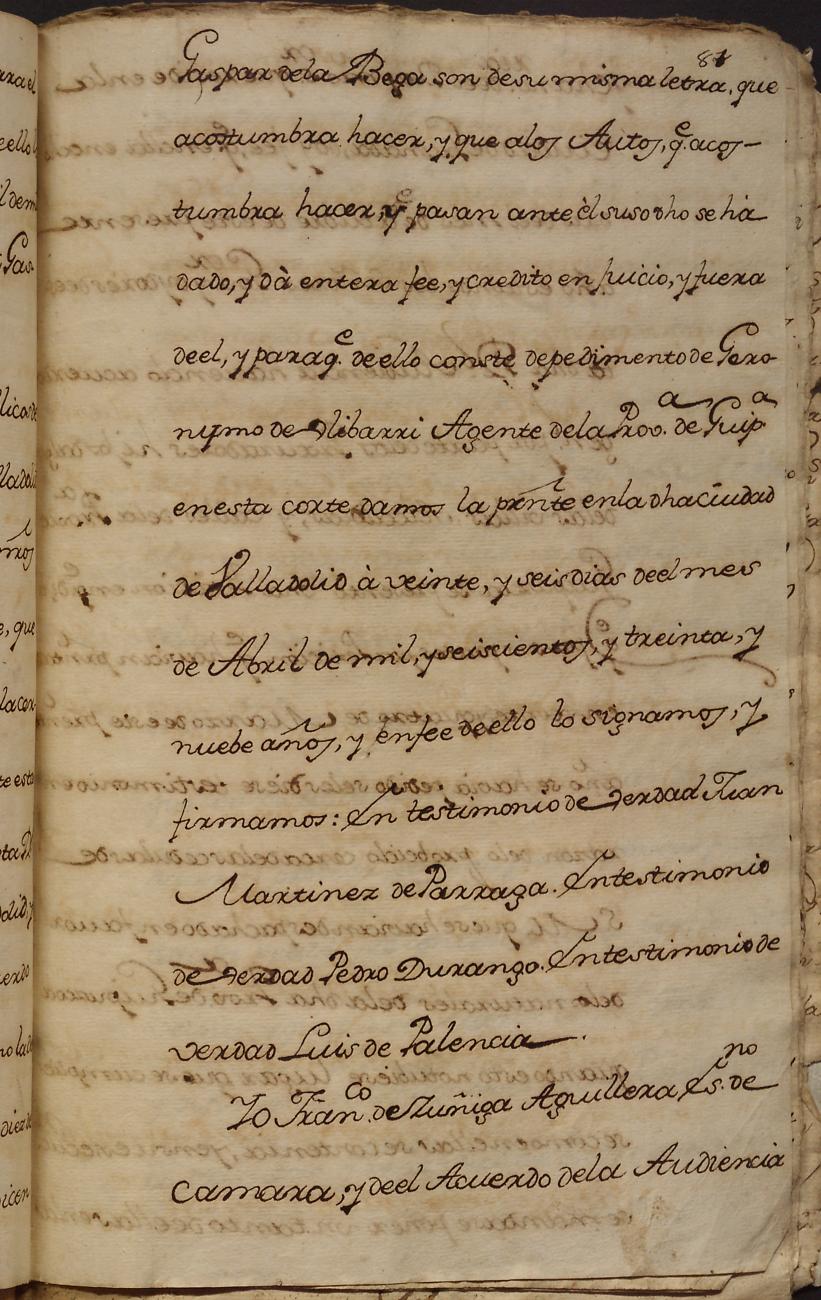 81
Gaspar dela Bega son desumisma letra, que
acostumbra hacer, y que alos Autos, q.e acos-
tumbra hacer, y pasan ante èl susodho se há
dado, y dà entera fee, y credito en Juicio, y fuera
deel, y paraq.e deello conste depedimento de Gero-
nymo de Vlibarri Agente dela Prov.a de Guip.a
enesta corte damos la prnte enla dha ciudad
de Valladolid à veinte, y seis dias deel mes
de Abril de mil, y seiscientos, y treinta, y
nuebe años, y enfee deello lo signamos, y
firmamos: En testimonio de verdad Fran
Martinez de Parraga. Entestimonio
de verdad Pedro Durango. Entestimonio de
verdad Luis de Palencia
Yo Fran.co de Zuñiga Aguillera Es.no de
camara, y deel Acuerdo dela Audiencia
ara el
eello
l dem
Gas-
lica de
lladoli
mos
e, que
la cer-
te esta
olid, y
uerdo
diez de
icen